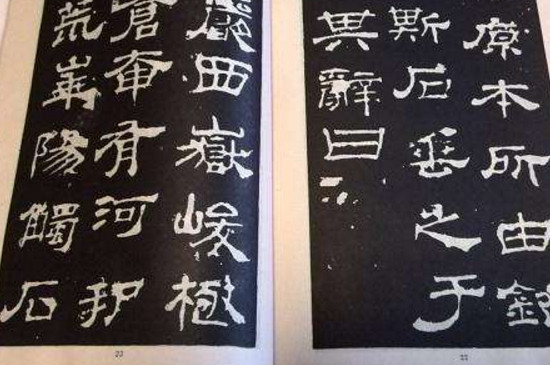 原本所由銘
斯石垂之于
其辭曰
巖西嶽峻極
蒼奄有河朔
荒華陽觸石
22
23